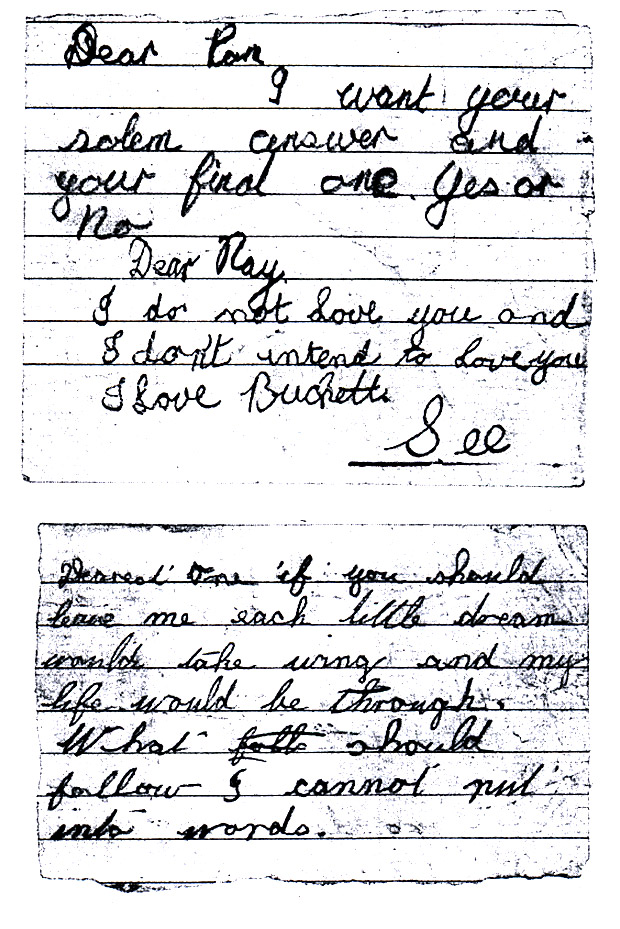 Dear Pam
I want your
solem answer and
your final one. Yes or
No
Dear Ray,
I do not love you and
I don't intend to love you
I Love
See
Dearest One if you should
leave me each little dream
would take wing and my
life would be through.
What should
follow I cannot put
into words.